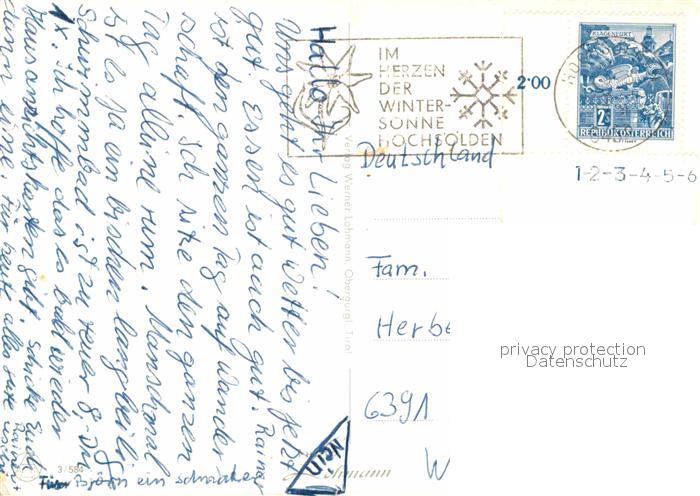 Hallo Ihr Lieben!
Uns geht es gut Wetter bis jetzt
gut. Essen ist auch gut. Rainer
ist den ganzen Tag auf Wander
schaft, ich sitze den ganzen
Tag alleine rum. Manchmal
ist es ja ein bischen langweilig
Schwimmbad ist zu teuer 8,- DM
1x. Ich hoffe das es bald wieder
Hausansichtskarten gibt, schicke Euch
davon eine. Für heute alles Gute
Für Björn ein
IM
HERZEN
DER
WINTER-
SONNE
HOCHSÖLDEN
2·00
KLAGENFURT
2S
REPUBLIK ÖSTERREICH
1-2-3-4-5-6
Deutschland
Fam.
Herbe
6391
W
privacy protection
Datenschutz
Verlag Werner Lohmann, Obergurgl, Tirol
3/584
Lohmann